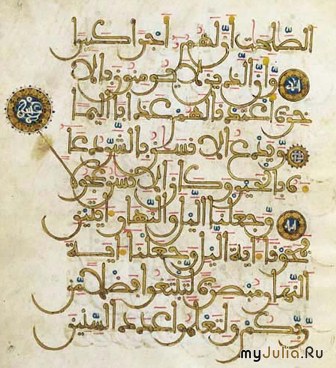 الصلحت أن لهم أجرا كبيرا
وأن الذين لا يومنون بالا
خرة أعتدنا لهم عذابا أليما
ويدع الانسن بالشر دعا
ه بالخير وكان الانسن عجولا
وجعلنا اليل والنهار ايتين
فمحونا اية اليل وجعلنا اية
النهار مبصرة لتبتغوا فضلا من
ربكم ولتعلموا عدد السنين
myJulia.Ru